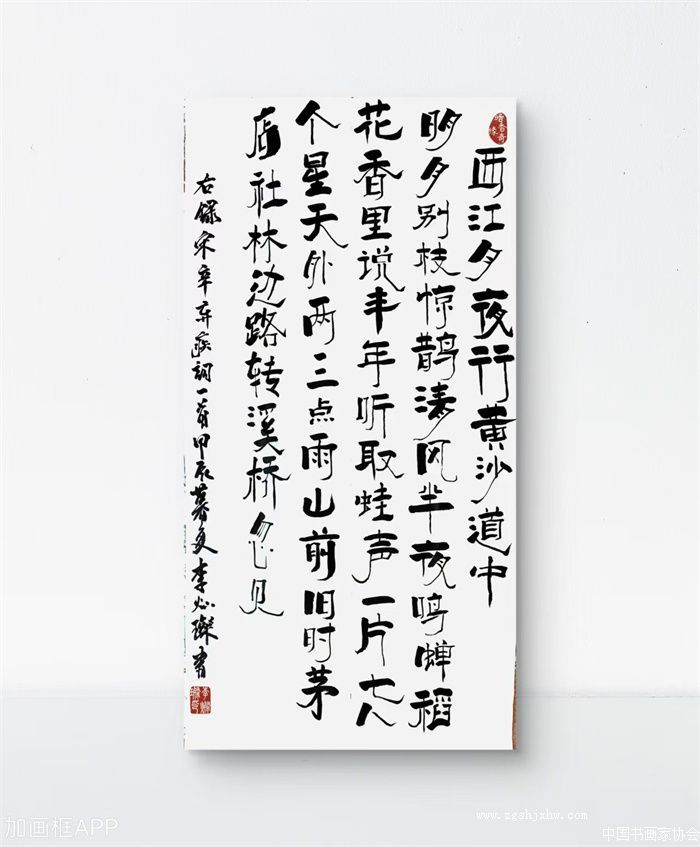 西江月夜行黄沙道中
明月别枝惊鹊清风半夜鸣蝉稻
花香里说丰年听取蛙声一片七八
个星天外两三点雨山前旧时茅
店社林边路转溪桥忽见
右録宋辛弃疾詞一首甲辰暮夏李必書
加画框APP
www.zgshjxhw.com
中国书画家协会